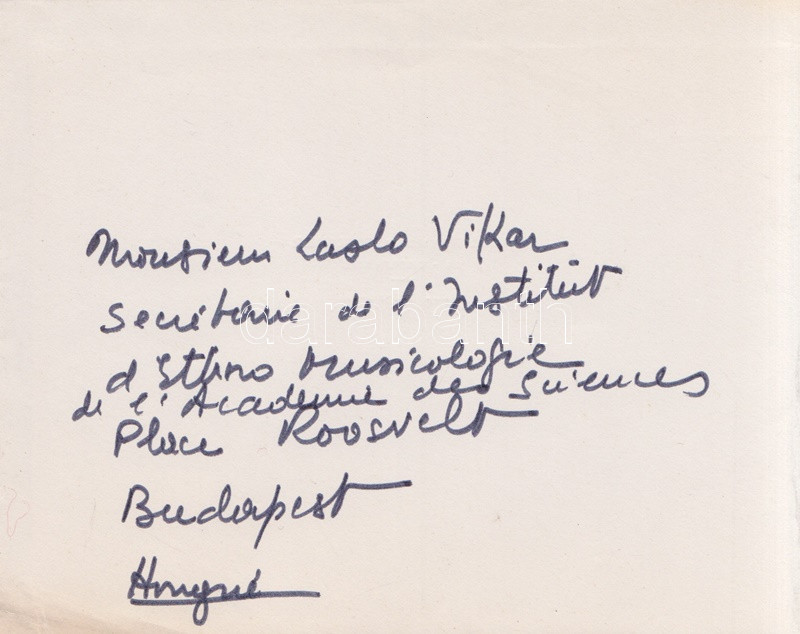 Monsieur Laslo Vikar
Secrétaire de l'Institut
d'Ethno musicologie
de l'Académie des Sciences
Place Roosvelt
Budapest
Hongrie
darabanth